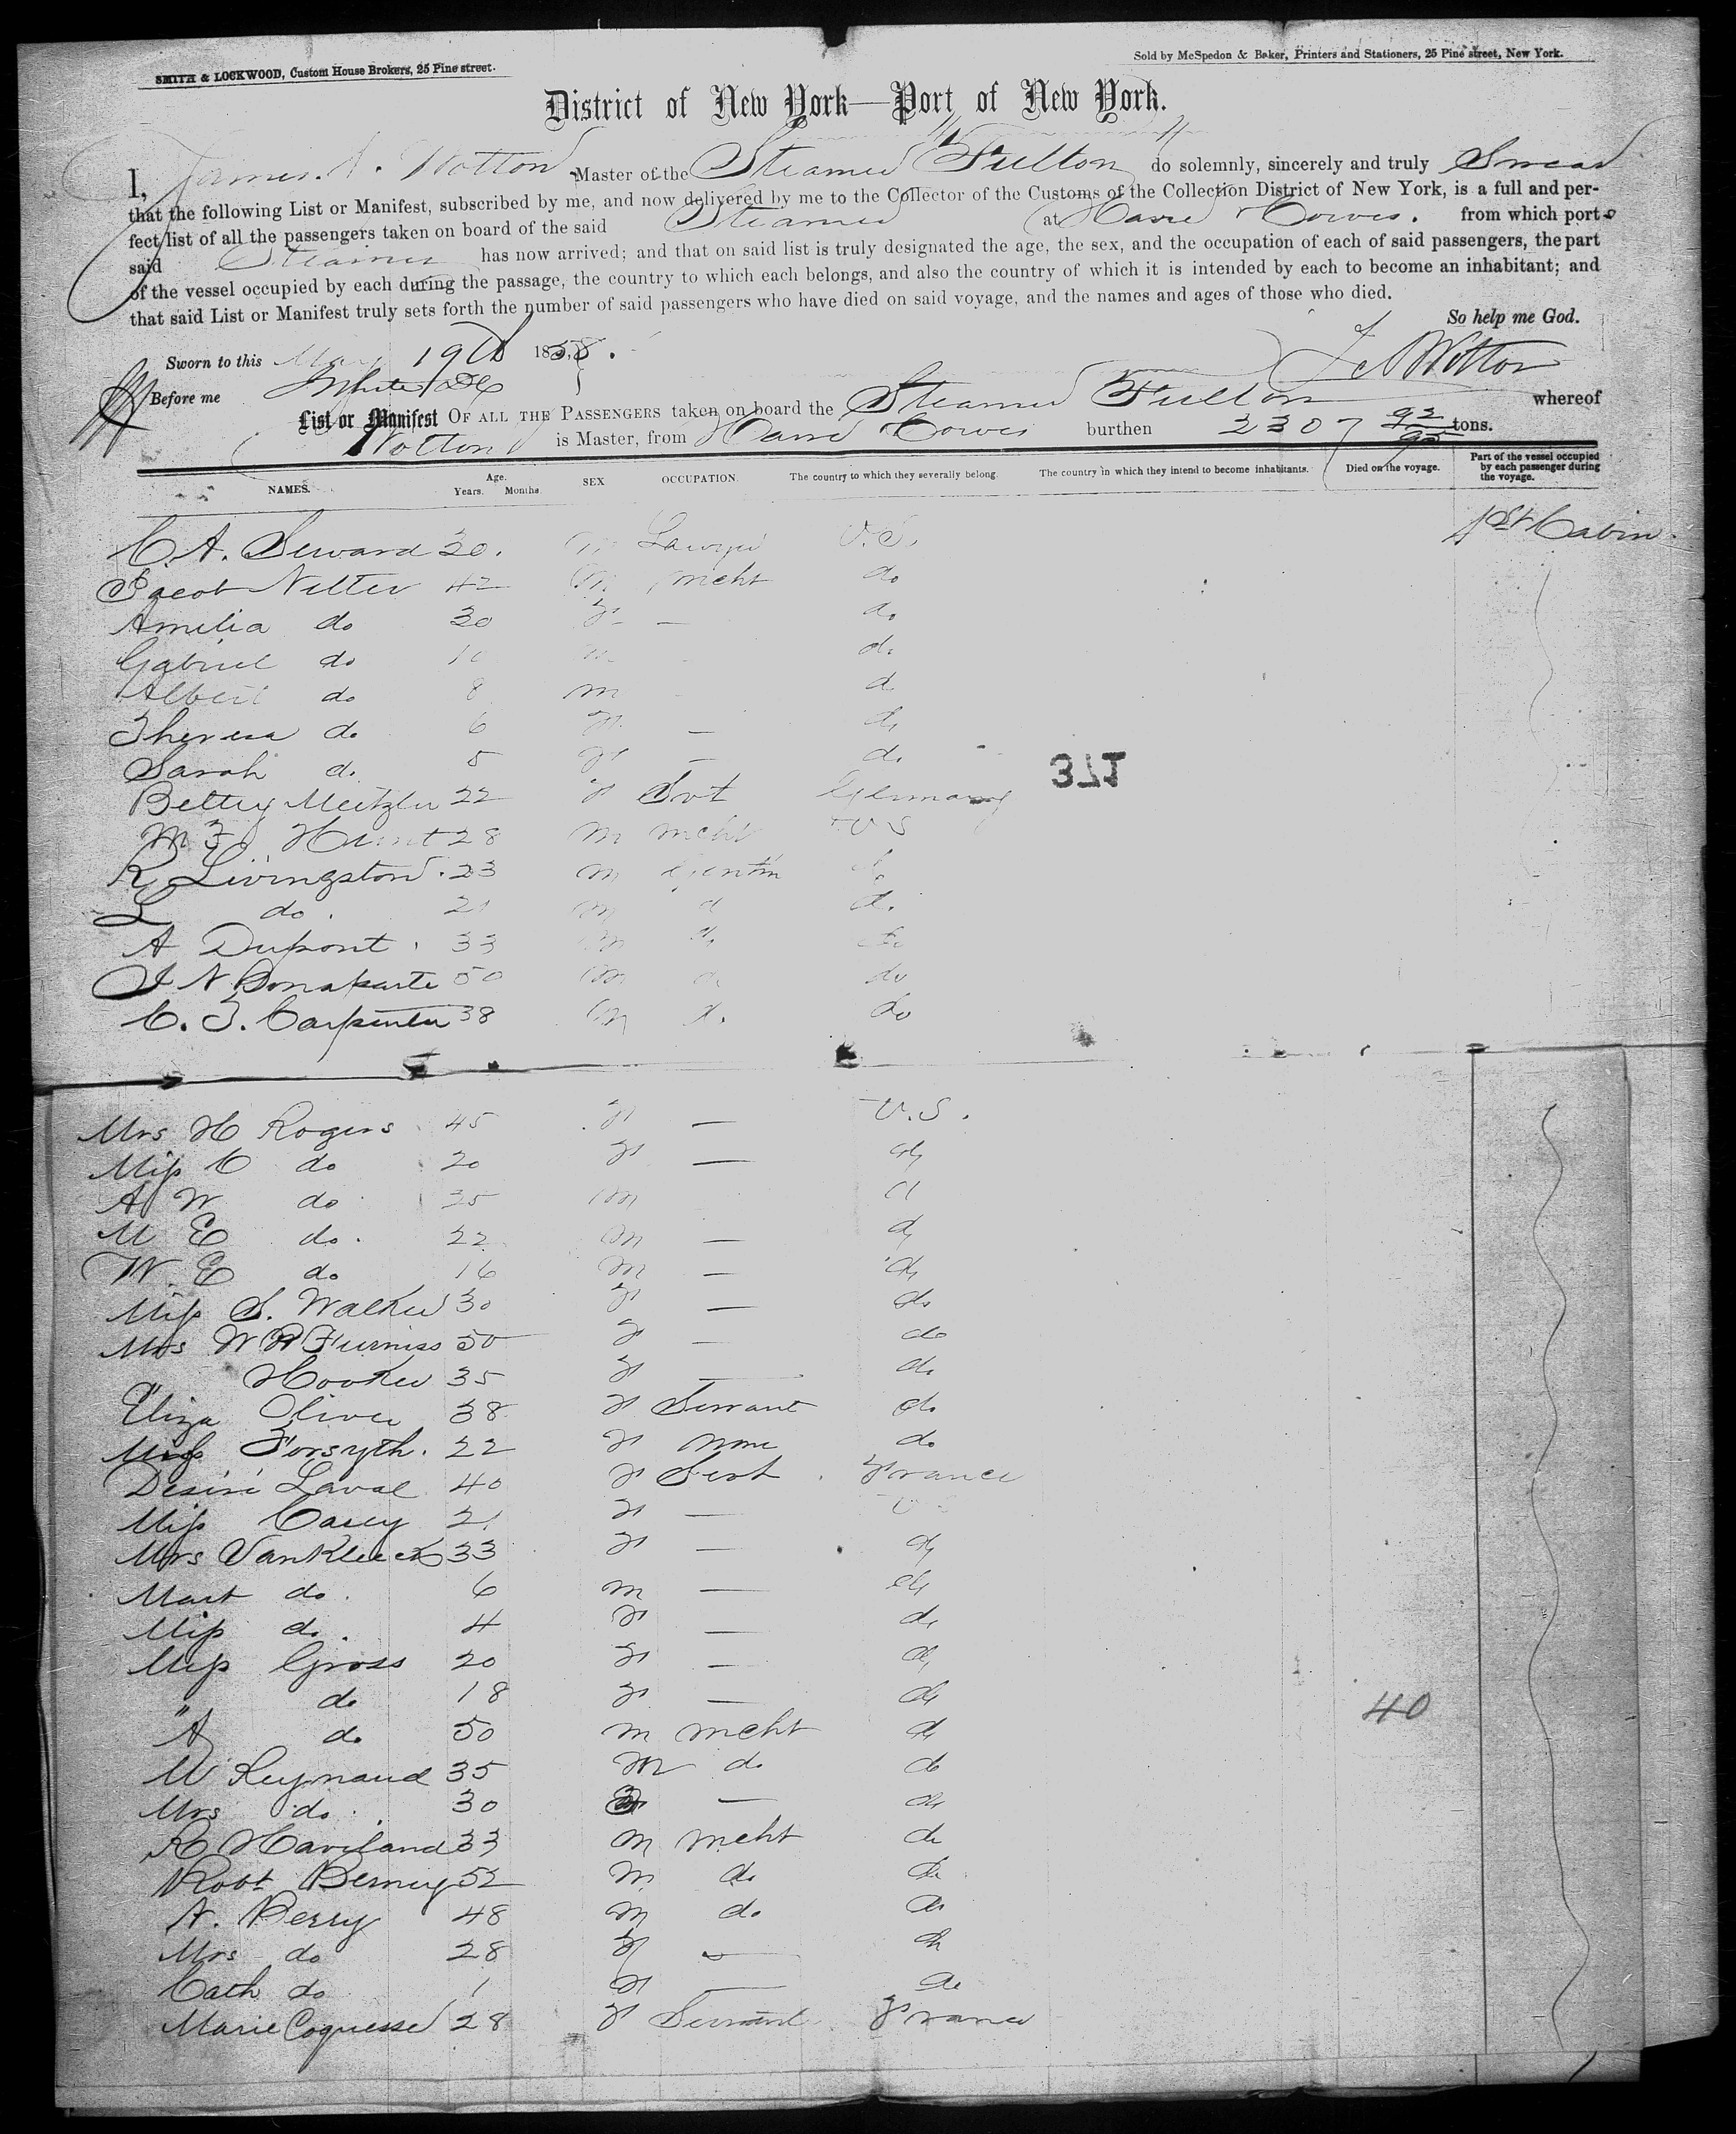 SMITH & LOCKWOOD, Custom House Brokers, 25 Pine street.
Sold by McSpedon & Baker, Printers and Stationers, 25 Pine street, New York.
District of New York—Port of New York.
I, James A. Wotton Master of the Steamer Fulton do solemnly, sincerely and truly Swear
that the following List or Manifest, subscribed by me, and now delivered by me to the Collector of the Customs of the Collection District of New York, is a full and per-
fect list of all the passengers taken on board of the said Steamer at Havre & Cowes. from which port
said Steamer has now arrived; and that on said list is truly designated the age, the sex, and the occupation of each of said passengers, the part
of the vessel occupied by each during the passage, the country to which each belongs, and also the country of which it is intended by each to become an inhabitant; and
that said List or Manifest truly sets forth the number of said passengers who have died on said voyage, and the names and ages of those who died.
So help me God.
Sworn to this May 19th 1858. JA Wotton
Before me
List or Manifest OF ALL THE PASSENGERS taken on board the Steamer Fulton whereof
Wotton is Master, from Havre & Cowes burthen 2307 92/95 tons.
NAMES. Age. Years. Months. SEX OCCUPATION. The country to which they severally belong. The country in which they intend to become inhabitants. Died on the voyage. Part of the vessel occupied by each passenger during the voyage.
C. A. Seward 30. m Lawyer U.S. 1st Cabin.
Jacob Netter 42 m mcht do
Amelia do 30 F — do
Gabriel do m do
Albert do 8 m do
Theresa do 6 F — do
Sarah do 5 F — do
371
Bettey Meitzler 22 F Svt Germany
M F Hunt 28 m mcht U S
R Livingston. 23 m Gentm do
L do. 21 m do do
A Dupont. 33 m do do
J N Bonaparte 50 m do do
C. T. Carpenter 38 m do do
Mrs H Rogers 45 F — U.S.
Miss C do 20 F — do
A W do 25 m do
M E do. 22 m — do
W. E do 16 m — do
Miss S. Walker 30 F — do
Mrs W P Furniss 50 F — do
" Hooker 35 F — do
Eliza Oliver 38 F Servant do
Miss Forsyth. 22 F none do
Desire Laval 40 F Servt France
Miss Carey 21 F — U
Mrs VanKleeck 33 F — do
Mast do. 6 m — do
Miss do. 4 F — do
Miss Gross 20 F — do
" do 18 F — do
40
A do 50 m mcht do
M Reynaud 35 m do do
Mrs do. 30 F — do
R Haviland 33 m mcht do
Robt Berney 52 m do do
A. Perry 48 m do do
Mrs do 28 F — do
Cath do 1 F — do
Marie Coquesse 28 F Servant France